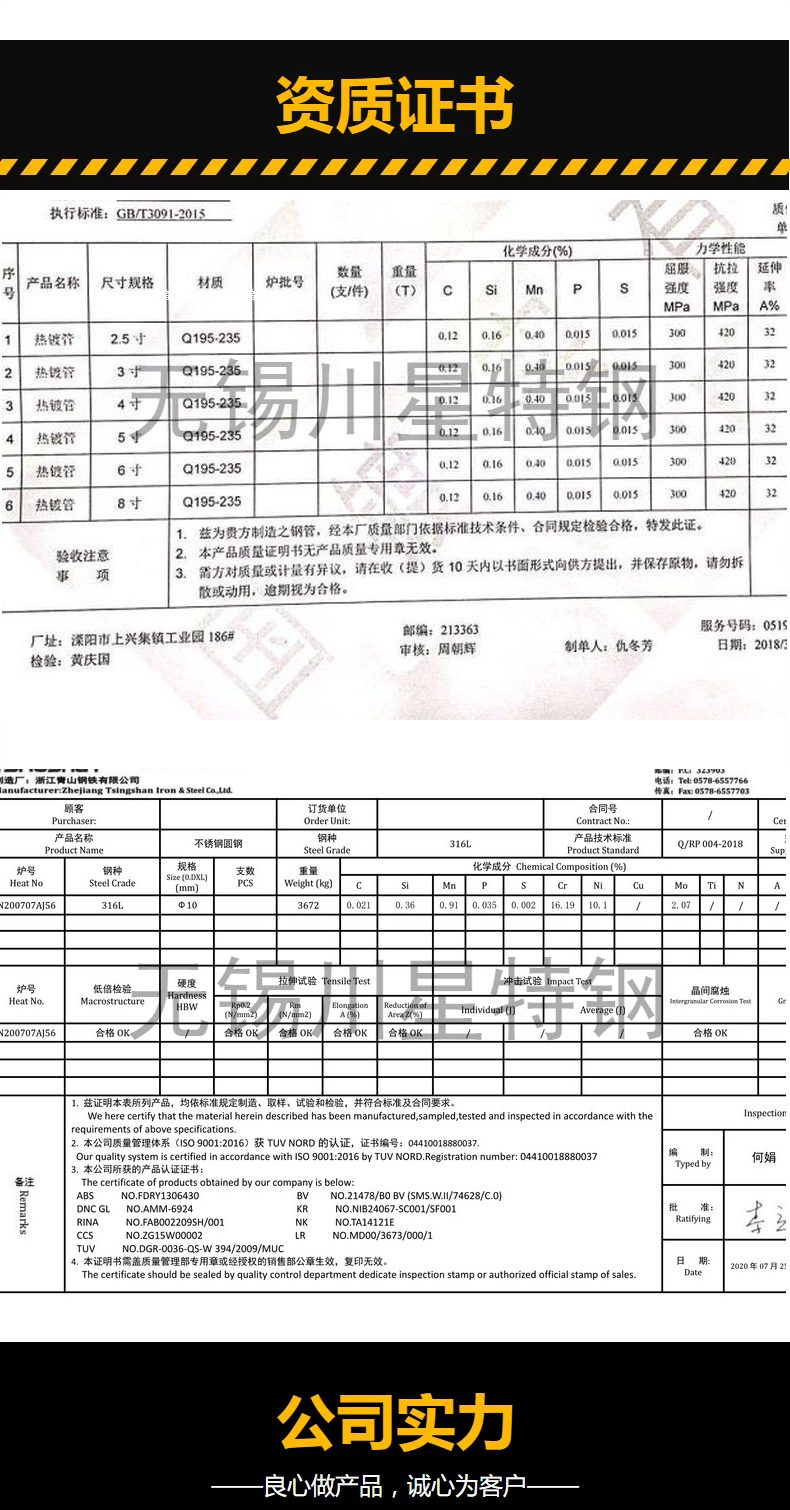 资质证书
执行标准：GB/T3091-2015
序号 产品名称 尺寸规格 材质 炉批号 数量(支/件) 重量(T) 化学成分(%) 力学性能
C Si Mn P S 屈服强度MPa 抗拉强度MPa 延伸率A%
1 热镀管 2.5寸 Q195-235 0.12 0.16 0.40 0.015 0.015 300 420 32
2 热镀管 3寸 Q195-235 0.12 0.16 0.40 0.015 0.015 300 420 32
3 热镀管 4寸 Q195-235 0.12 0.16 0.40 0.015 0.015 300 420 32
4 热镀管 5寸 Q195-235 0.12 0.16 0.40 0.015 0.015 300 420 32
5 热镀管 6寸 Q195-235 0.12 0.16 0.40 0.015 0.015 300 420 32
6 热镀管 8寸 Q195-235 0.12 0.16 0.40 0.015 0.015 300 420 32
无锡川星特钢
验收注意事项
1. 兹为贵方制造之钢管，经本厂质量部门依据标准技术条件、合同规定检验合格，特发此证。
2. 本产品质量证明书无产品质量专用章无效。
3. 需方对质量或计量有异议，请在收（提）货10天内以书面形式向供方提出，并保存原物，请勿拆
散或动用，逾期视为合格。
厂址：溧阳市上兴集镇工业园186# 邮编：213363 服务号码：0519
检验：黄庆国 审核：周朝辉 制单人：仇冬芳 日期：2018/3
制造厂：浙江青山钢铁有限公司 邮编：P.C: 323903
Manufacturer:Zhejiang Tsingshan Iron & Steel Co.,Ltd. 电话：Tel: 0578-6557766
传真：Fax: 0578-6557703
顾客 订货单位 合同号
Purchaser: Order Unit: Contract No.: /
产品名称 不锈钢圆钢 钢种 316L 产品技术标准 Q/RP 004-2018
Product Name Steel Grade Product Standard
炉号 钢种 规格 支数 重量 化学成分 Chemical Composition (%)
Heat No Steel Crade Size (O.DXL) (mm) PCS Weight (kg) C Si Mn P S Cr Ni Cu Mo Ti N A
N200707AJ56 316L Φ10 3672 0.021 0.36 0.91 0.035 0.002 16.19 10.1 / 2.07 / / /
炉号 低倍检验 硬度 拉伸试验 Tensile Test 冲击试验 Impact Test 晶间腐蚀
Heat No. Macrostructure Hardness HBW Rp0.2 (N/mm2) Rm (N/mm2) Elongation A (%) Reduction of Area Z(%) Individual (J) Average (J) Intergranular Corrosion Test
N200707AJ56 合格 OK / 合格 OK 合格 OK 合格 OK 合格 OK / / / 合格 OK
无锡川星特钢
备注 Remarks
1. 兹证明本表所列产品，均依标准规定制造、取样、试验和检验，并符合标准及合同要求。
We here certify that the material herein described has been manufactured,sampled,tested and inspected in accordance with the
requirements of above specifications.
2. 本公司质量管理体系（ISO 9001:2016）获 TUV NORD 的认证，证书编号：04410018880037.
Our quality system is certified in accordance with ISO 9001:2016 by TUV NORD.Registration number: 04410018880037
3. 本公司所获的产品认证证书：
The certificate of products obtained by our company is below:
ABS NO.FDRY1306430 BV NO.21478/B0 BV (SMS.W.II/74628/C.0)
DNC GL NO.AMM-6924 KR NO.NIB24067-SC001/SF001
RINA NO.FAB002209SH/001 NK NO.TA14121E
CCS NO.ZG15W00002 LR NO.MD00/3673/000/1
TUV NO.DGR-0036-QS-W 394/2009/MUC
4. 本证明书需盖质量管理部专用章或经授权的销售部公章生效，复印无效。
The certificate should be sealed by quality control department dedicate inspection stamp or authorized official stamp of sales.
Inspection
编 制：
Typed by 何娟
批 准：
Ratifying
日 期：
Date 2020年07月25
公司实力
——良心做产品，诚心为客户——